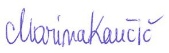 Marina Kaučič